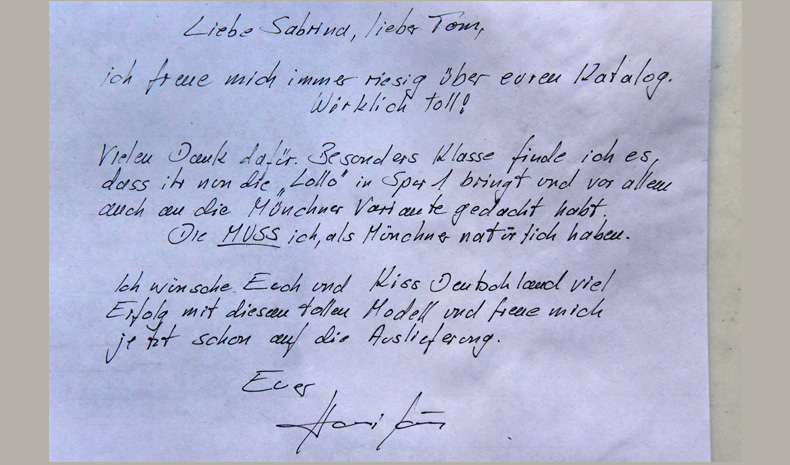 Liebe Sabrina, lieber Tom,
ich freue mich immer riesig über euren Katalog.
Wirklich toll!
Vielen Dank dafür. Besonders Klasse finde ich es,
dass ihr nun die „Lollo" in Spur 1 bringt und vor allem
auch an die Münchner Variante gedacht habt.
Die MUSS ich, als Münchner natürlich haben.
Ich wünsche Euch und Kiss Deutschland viel
Erfolg mit diesem tollen Modell und freue mich
jetzt schon auf die Auslieferung.
Euer